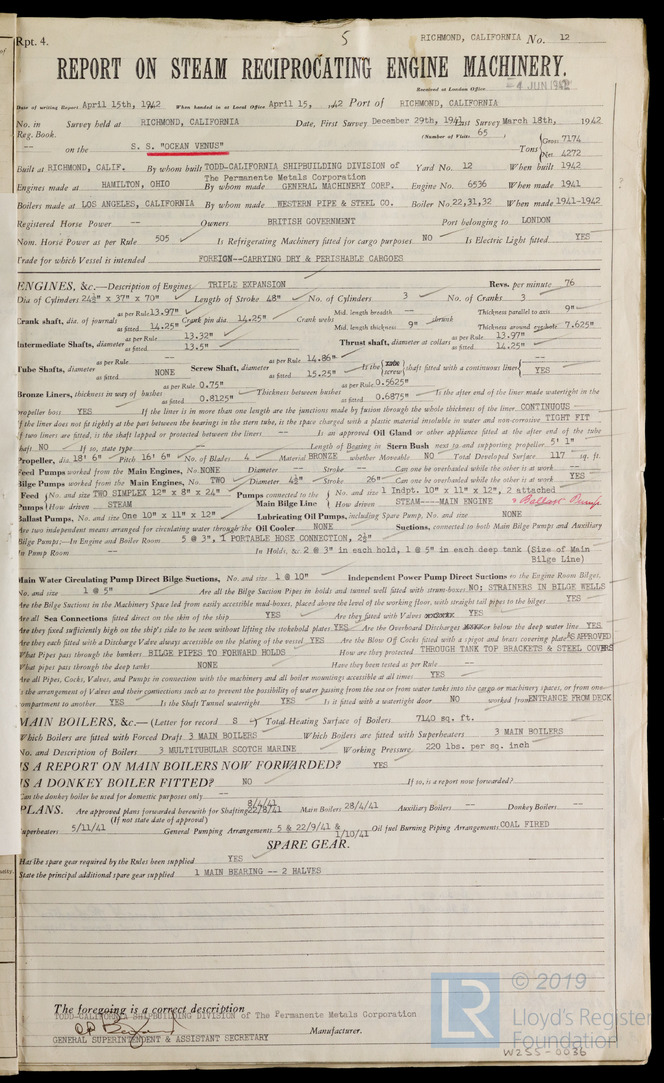 Rpt. 4. 5 RICHMOND, CALIFORNIA No. 12
REPORT ON STEAM RECIPROCATING ENGINE MACHINERY.
Received at London Office 4 JUN 1942
Date of writing Report April 15th, 1942 When handed in at Local Office April 15, 1942 Port of RICHMOND, CALIFORNIA
No. in Survey held at RICHMOND, CALIFORNIA Date, First Survey December 29th, 1941 Last Survey March 18th, 1942
Reg. Book. (Number of Visits 65)
on the S. S. "OCEAN VENUS" Tons Gross 7174
Net 4272
Built at RICHMOND, CALIF. By whom built TODD-CALIFORNIA SHIPBUILDING DIVISION of Yard No. 12 When built 1942
The Permanente Metals Corporation
Engines made at HAMILTON, OHIO By whom made GENERAL MACHINERY CORP. Engine No. 6536 When made 1941
Boilers made at LOS ANGELES, CALIFORNIA By whom made WESTERN PIPE & STEEL CO. Boiler No. 22,31,32 When made 1941-1942
Registered Horse Power -- Owners BRITISH GOVERNMENT Port belonging to LONDON
Nom. Horse Power as per Rule 505 Is Refrigerating Machinery fitted for cargo purposes NO Is Electric Light fitted YES
Trade for which Vessel is intended FOREIGN--CARRYING DRY & PERISHABLE CARGOES
ENGINES, &c.—Description of Engines TRIPLE EXPANSION Revs. per minute 76
Dia of Cylinders 24½" x 37" x 70" Length of Stroke 48" No. of Cylinders 3 No. of Cranks 3
Crank shaft, dia. of journals as per Rule 13.97" as fitted 14.25" Crank pin dia. 14.25" Crank webs Mid. length breadth -- Mid. length thickness 9" shrunk Thickness parallel to axis 9" Thickness around eye hole 7.625"
Intermediate Shafts, diameter as per Rule 13.32" as fitted 13.5" Thrust shaft, diameter at collars as per Rule 13.97" as fitted 14.25"
Tube Shafts, diameter as per Rule -- as fitted NONE Screw Shaft, diameter as per Rule 14.86" as fitted 15.25" Is the screw shaft fitted with a continuous liner YES
Bronze Liners, thickness in way of bushes as per Rule 0.75" as fitted 0.8125" Thickness between bushes as per Rule 0.5625" as fitted 0.6875" Is the after end of the liner made watertight in the
propeller boss YES If the liner is in more than one length are the junctions made by fusion through the whole thickness of the liner CONTINUOUS
If the liner does not fit tightly at the part between the bearings in the stern tube, is the space charged with a plastic material insoluble in water and non-corrosive TIGHT FIT
If two liners are fitted, is the shaft lapped or protected between the liners -- Is an approved Oil Gland or other appliance fitted at the after end of the tube
shaft NO If so, state type -- Length of Bearing in Stern Bush next to and supporting propeller 5' 1"
Propeller, dia. 18' 6" Pitch 16' 6" No. of Blades 4 Material BRONZE whether Moveable NO Total Developed Surface 117 sq. ft.
Feed Pumps worked from the Main Engines, No. NONE Diameter -- Stroke -- Can one be overhauled while the other is at work --
Bilge Pumps worked from the Main Engines, No. TWO Diameter 4½" Stroke 26" Can one be overhauled while the other is at work YES
Feed Pumps No. and size TWO SIMPLEX 12" x 8" x 24" Pumps connected to the Main Bilge Line No. and size 1 Indpt. 10" x 11" x 12", 2 attached
How driven STEAM How driven STEAM----MAIN ENGINE & Ballast Pump
Ballast Pumps, No. and size One 10" x 11" x 12" Lubricating Oil Pumps, including Spare Pump, No. and size NONE
Are two independent means arranged for circulating water through the Oil Cooler NONE Suctions, connected to both Main Bilge Pumps and Auxiliary
Bilge Pumps:—In Engine and Boiler Room 5 @ 3", 1 PORTABLE HOSE CONNECTION, 2½"
In Pump Room -- In Holds, &c. 2 @ 3" in each hold, 1 @ 5" in each deep tank (Size of Main
Bilge Line)
Main Water Circulating Pump Direct Bilge Suctions, No. and size 1 @ 10" Independent Power Pump Direct Suctions to the Engine Room Bilges,
No. and size 1 @ 5" Are all the Bilge Suction Pipes in holds and tunnel well fitted with strum-boxes NO; STRAINERS IN BILGE WELLS
Are the Bilge Suctions in the Machinery Space led from easily accessible mud-boxes, placed above the level of the working floor, with straight tail pipes to the bilges YES
Are all Sea Connections fitted direct on the skin of the ship YES Are they fitted with Valves YES
Are they fixed sufficiently high on the ship's side to be seen without lifting the stokehold plates YES Are the Overboard Discharges or below the deep water line YES
Are they each fitted with a Discharge Valve always accessible on the plating of the vessel YES Are the Blow Off Cocks fitted with a spigot and brass covering plate AS APPROVED
What Pipes pass through the bunkers BILGE PIPES TO FORWARD HOLDS How are they protected THROUGH TANK TOP BRACKETS & STEEL COVERS
What pipes pass through the deep tanks NONE Have they been tested as per Rule --
Are all Pipes, Cocks, Valves, and Pumps in connection with the machinery and all boiler mountings accessible at all times YES
Is the arrangement of Valves and their connections such as to prevent the possibility of water passing from the sea or from water tanks into the cargo or machinery spaces, or from one
compartment to another YES Is the Shaft Tunnel watertight YES Is it fitted with a watertight door NO worked from ENTRANCE FROM DECK
MAIN BOILERS, &c.—(Letter for record S) Total Heating Surface of Boilers 7140 sq. ft.
Which Boilers are fitted with Forced Draft 3 MAIN BOILERS Which Boilers are fitted with Superheaters 3 MAIN BOILERS
No. and Description of Boilers 3 MULTITUBULAR SCOTCH MARINE Working Pressure 220 lbs. per sq. inch
IS A REPORT ON MAIN BOILERS NOW FORWARDED? YES
IS A DONKEY BOILER FITTED? NO If so, is a report now forwarded?
Can the donkey boiler be used for domestic purposes only --
PLANS. Are approved plans forwarded herewith for Shafting 8/4/41 22/8/41 Main Boilers 28/4/41 Auxiliary Boilers -- Donkey Boilers --
(If not state date of approval)
Superheaters 5/11/41 General Pumping Arrangements 5 & 22/9/41 & 1/10/41 Oil fuel Burning Piping Arrangements COAL FIRED
SPARE GEAR.
Has the spare gear required by the Rules been supplied YES
State the principal additional spare gear supplied 1 MAIN BEARING -- 2 HALVES
The foregoing is a correct description
TODD-CALIFORNIA SHIPBUILDING DIVISION of The Permanente Metals Corporation
Manufacturer.
GENERAL SUPERINTENDENT & ASSISTANT SECRETARY
© 2019
LR
Lloyd's Register
Foundation
W255-0036